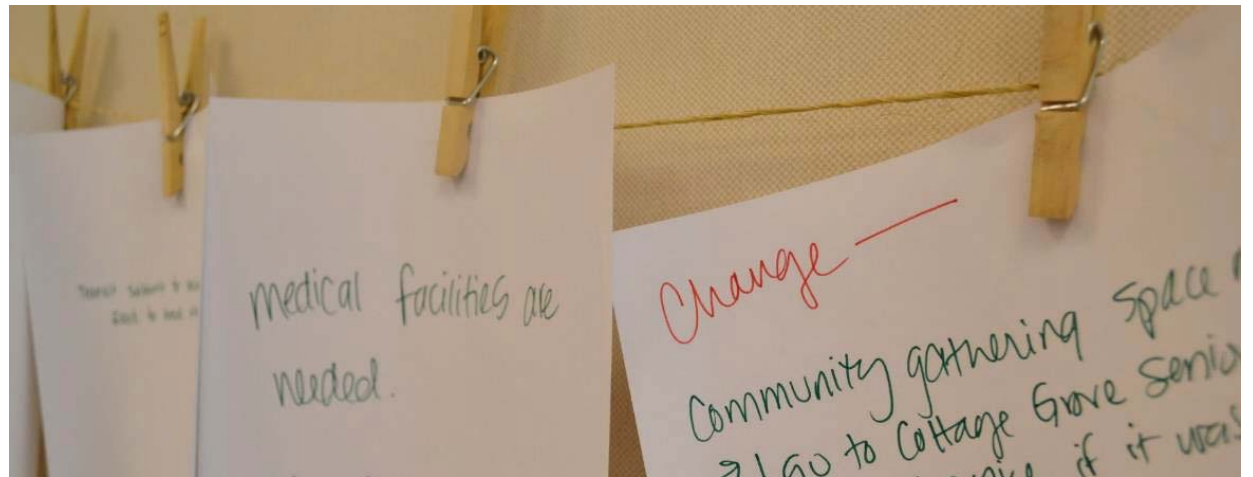 medical facilities are
needed.
Change —
Community gathering space
I go to Cottage Grove Senio
if it was